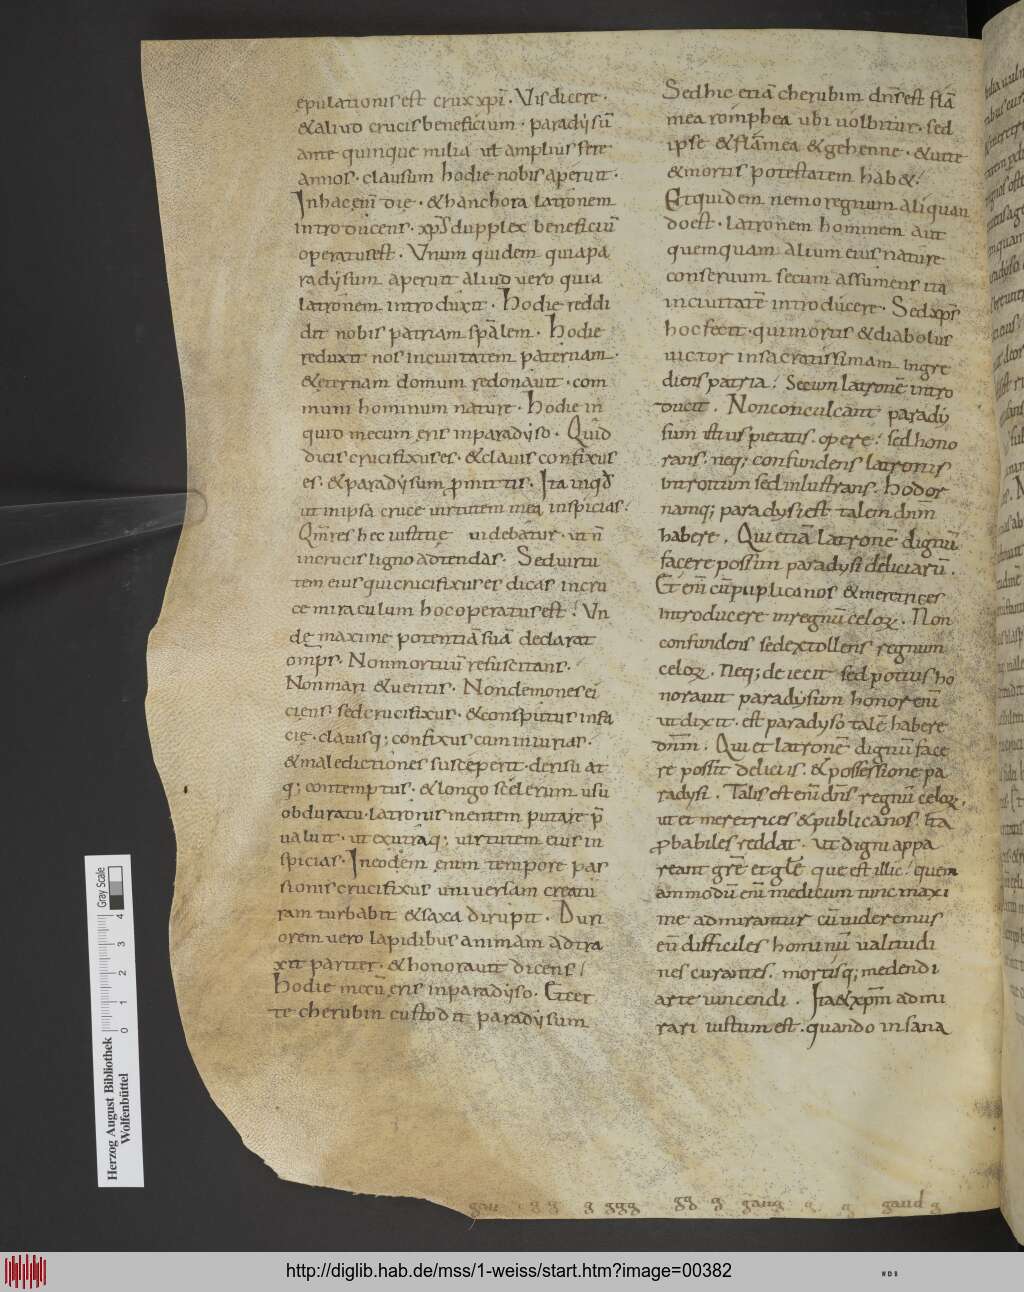 epulationis est crux xp̄i. Vis dicere.
& aliud crucis beneficium. paradysū
ante quinque milia ut amplius fere
annos. clausum hodie nobis aperuit.
In hac enī die. & hanc hora latronem
introducens. xp̄s dupplex beneficiū
operatus est. Vnum quidem quia pa
radysum aperuit aliud vero quia
latronem introduxit. Hodie reddi
dit nobis patriam sp̄alem. Hodie
reduxit nos in ciuitatem paternam.
& eternam domum redonauit. com
muni hominum nature. Hodie in
quid mecum eris in paradyso. Quid
dicis crucifixus es. & clauis confixus
es. & paradysum ꝓmittis. Ita inqđ
ut in ipsa cruce virtutem mea inspicias.
Qm̄ res hec iustitię uidebatur. ut n̄
in crucis ligno adtendas. Sed uirtu
tem eius qui crucifixus es dicas in cru
ce miraculum hoc operatus est. Vn
de maxime potentiā suā declarat
omps. Non mortuū resuscitans.
Non mari & uentis. Non demones ei
ciens. sed crucifixus. & consputus in fa
cie. clauisq; confixus cum iniurias.
& maledictiones susceperit. derisu at
q; contemptus. & longo scelerum usu
obduratu. latronis mentem putare p̄
ualuit. ut ex utrāq; virtutem eius in
spicias. In eodem enim tempore pas
sionis crucifixus uniuersam creatu
ram turbabit & saxa dirupit. Duri
orem vero lapidibus animam adtra
xit pariter. & honorauit dicens.
Hodie mecū eris in paradyso. Et cer
te cherubin custodit paradysum
Sed hic etiā cherubim dn̄s est flā
mea romphea ubi uolbitur. sed
ipse & flāmea & gehenne. & uite
& mortis potestatem hab&.
Et quidem nemo regnum aliquan
do est. latronem hominem aut
quemquam alium eius nature
conseruum secum assumens ita
in ciuitatē introducere. Sed xp̄s
hoc fecit. qui mortis & diabolus
uictor in sacratissimam ingre
diens patria. Secum latronē intro
ducit. Non conculcans parady
sum istius pietatis. opere. sed hono
rans. neq; confundens latronis
introitum sed inlustrans. Hodor
namq; paradysi est talem dnm̄
habere. Qui etiā latronē dignū
facere possim paradysi deliciarū.
Et enī cū puplicanos & meretrices
introducere in regnū celoꝝ. Non
confundens sed extollens regnum
celoꝝ. neq; deiecit sed potius ho
norauit paradysum honor enī
ut dixit. est paradyso talē habere
dnm̄. Qui et latronē dignū face
re possit deliciis. & possessione pa
radysi. Talis est enī dn̄s regnū celoꝝ.
ut et meretrices & publicanos. Ita
ꝓbabiles reddat. ut digni appa
reant gr̄e et gl̄e que est illic. quem
ammodū enī medicum tunc maxi
me admirantur cū uideremus
eū difficiles hominū ualitudi
nes curantes. mortisq; medendi
arte uincendi. Ita & xpm̄ admi
rari iustum est. quando insana
gau g g g ggg gg g gaug g g gaud g
Herzog August Bibliothek
Wolfenbüttel
Gray Scale
0 1 2 3 4
http://diglib.hab.de/mss/1-weiss/start.htm?image=00382